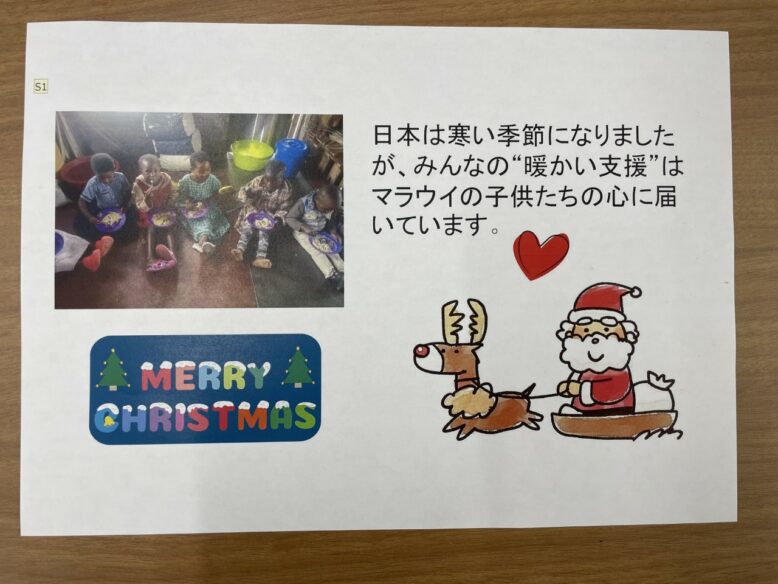 S1
日本は寒い季節になりました
が、みんなの“暖かい支援”は
マラウイの子供たちの心に届
いています。
MERRY
CHRISTMAS